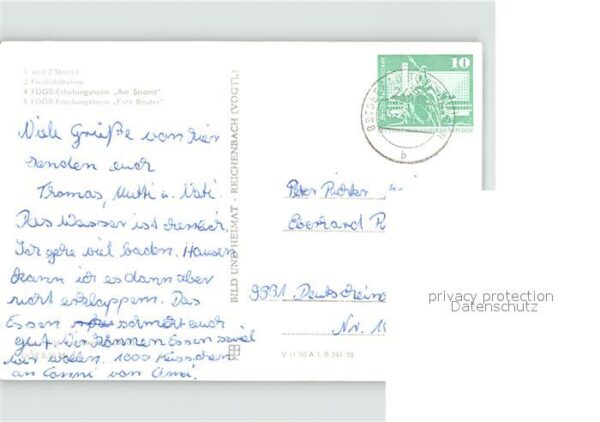 1 und 2 Strand
3 Freilichtbühne
4 FDGB-Erholungsheim „Am Strand"
5 FDGB-Erholungsheim „Fritz Reuter"
Viele Grüße von hier
senden euch
Thomas, Mutti u. Vati.
Das Wasser ist herrlich.
Ich gehe viel baden. Hansen
kann ich es dann aber
nicht erklappern. Das
Essen schmeckt auch
gut. Wir können Essen soviel
wir wollen. 1000 Küsschen
an Conni von Omi.
BILD UND HEIMAT · REICHENBACH (VOGTL)
V 11 50 A 1/B 244/78
10
OSTSEEBAD
b
Peter Richter
Eberhard
9331 Deutschein
Nr. 1
privacy protection
Datenschutz